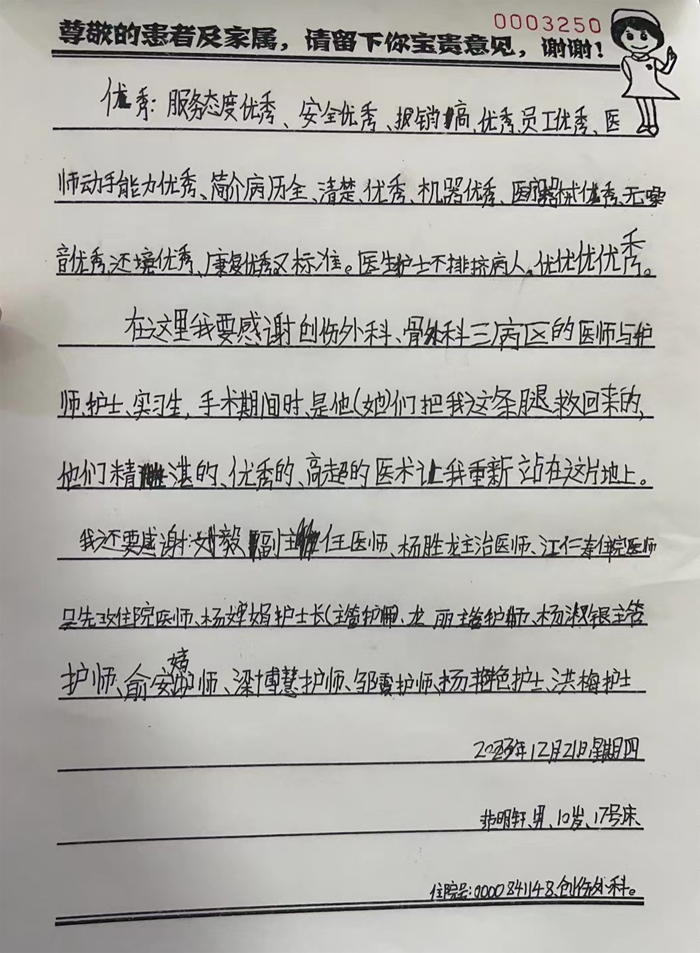 0003250
尊敬的患者及家属，请留下你宝贵意见，谢谢！
优秀：服务态度优秀、安全优秀、报销高、优秀、员工优秀、医
师动手能力优秀、简介病历全、清楚、优秀、机器优秀、医疗器械优秀、无噪
音优秀、还境优秀、康复优秀又标准。医生护士不排挤病人。优优优优秀。
在这里我要感谢创伤外科、骨外科三病区的医师与护
师、护士、实习生，手术期间时，是他(她)们把我这条腿救回来的，
他们精湛的、优秀的、高超的医术让我重新站在这片地上。
我还要感谢：刘毅副主任医师、杨胜龙主治医师、江仁寿住院医师
吴先政住院医师、杨婵娟护士长(主管护师)、龙丽主管护师、杨淑银主管
护师、俞安婷护师、梁博慧护师、邹霞护师、杨艳艳护士、洪梅护士
2023年12月21日星期四
明轩、男、10岁、17号床、
住院号：0000841148、创伤外科。